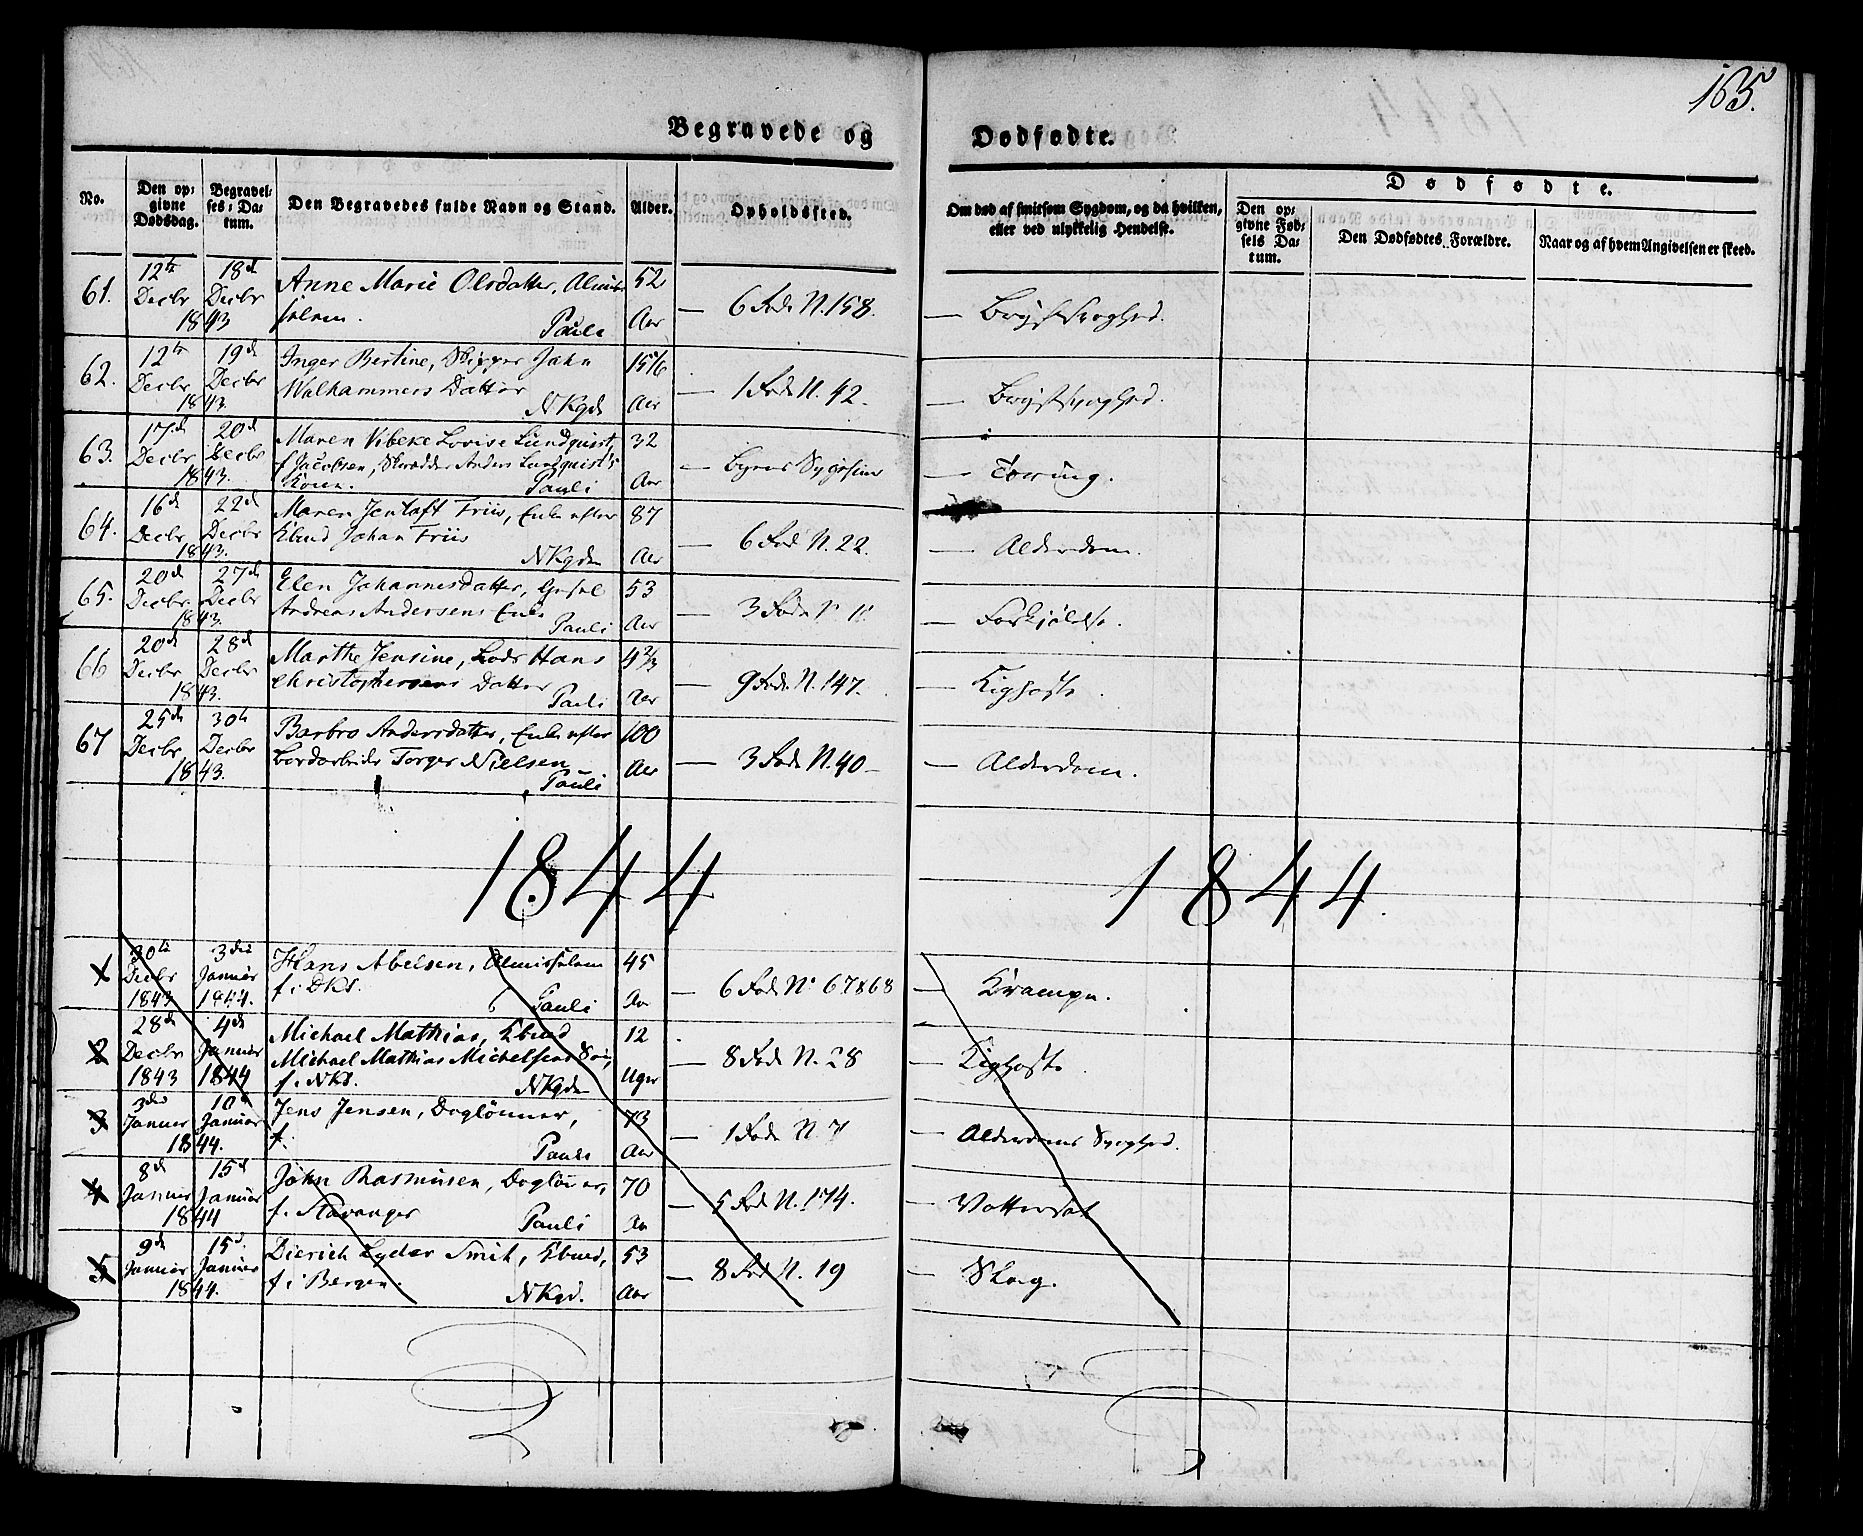 165.
Begravede og Dødfødte.
No.
Den opgivne Dødsdag.
Begravelses-Datum.
Den Begravedes fulde Navn og Stand.
Alder.
Opholdssted.
Om død af smitsom Sygdom, og da hvilken, eller ved ulykkelig Hendelse.
Dødfødte.
Den opgivne Fødsels Datum.
Den Dødfødtes Forældre.
Naar og af hvem Angivelsen er skeed.
61. 12te Decbr 18de Decbr 1843
Anne Marie Olsdatter, Almis-
selem. Pauli
52 Aar
— 6 Rode N. 158.
— Brystsvaghed.
62. 12te Decbr 19de Decbr 1843.
Inger Bertine, Skipper John
Walhammers Datter NKgd
Aar
— 1 Rode N. 42.
— Brystsvaghed.
63. 17de Decbr 20de Decbr 1843.
Maren Vibeke Lovise Lundquist,
f. Jacobsen, Skrædder Anders Lundquist's
Kone. Pauli
32 Aar
— Byens Sygehuus
— Tæring.
64. 16de Decbr 22de Decbr 1843.
Maren Jentoft Friis, Enke efter
Kbmd Johan Friis NKgden
87 Aar
— 6 Rode N. 22.
— Alderdom.
65. 20de Decbr 27de Decbr 1843.
Elen Johannesdatter,
Andreas Andersens Enke Pauli
53 Aar
— 3 Rode N
— Forkjølelse.
66 20de Decbr 28de Decbr 1843.
Marthe Jensine, Lods Hans
Christophersens Datter Pauli
4 2/3 Aar
— 9 Rode N. 147.
— Kighoste.
67 25de Decbr 30te Decbr 1843.
Barbro Andersdatter, Enke efter
Bordarbeider Torger Nielsen Pauli
100 Aar
— 3 Rode N. 40
— Alderdom.
1844 1844.
1 30te Decbr 1843 3die Januar 1844.
Hans Abelsen, Almisselem
f. i DKS. Pauli
45 Aar
— 6 Rode N. 67 & 68
— Krampe.
2 28de Decbr 1843 4de Januar 1844
Michael Mathias, Kbmd
Michael Mathias Michelsens Søn,
f. NKS. NKgden
12 Uger
— 8 Rode N. 28
— Kighoste
3 3die Januar 10de Januar 1844.
Jens Jensen, Daglønner,
f. Pauli
73 Aar
— 1 Rode N. 7
— Alderdoms Svaghed.
4 8de Januar 15de Januar 1844
John Rasmusen, Daglønner,
f. Stavanger Pauli
70 Aar
— 5 Rode N. 174.
— Vattersot
5 9de Januar 15de Januar 1844.
Dierich Lyder Smit, Kbmd,
f. i Bergen. NKgd.
53 Aar
— 8 Rode N. 19
— Slag.